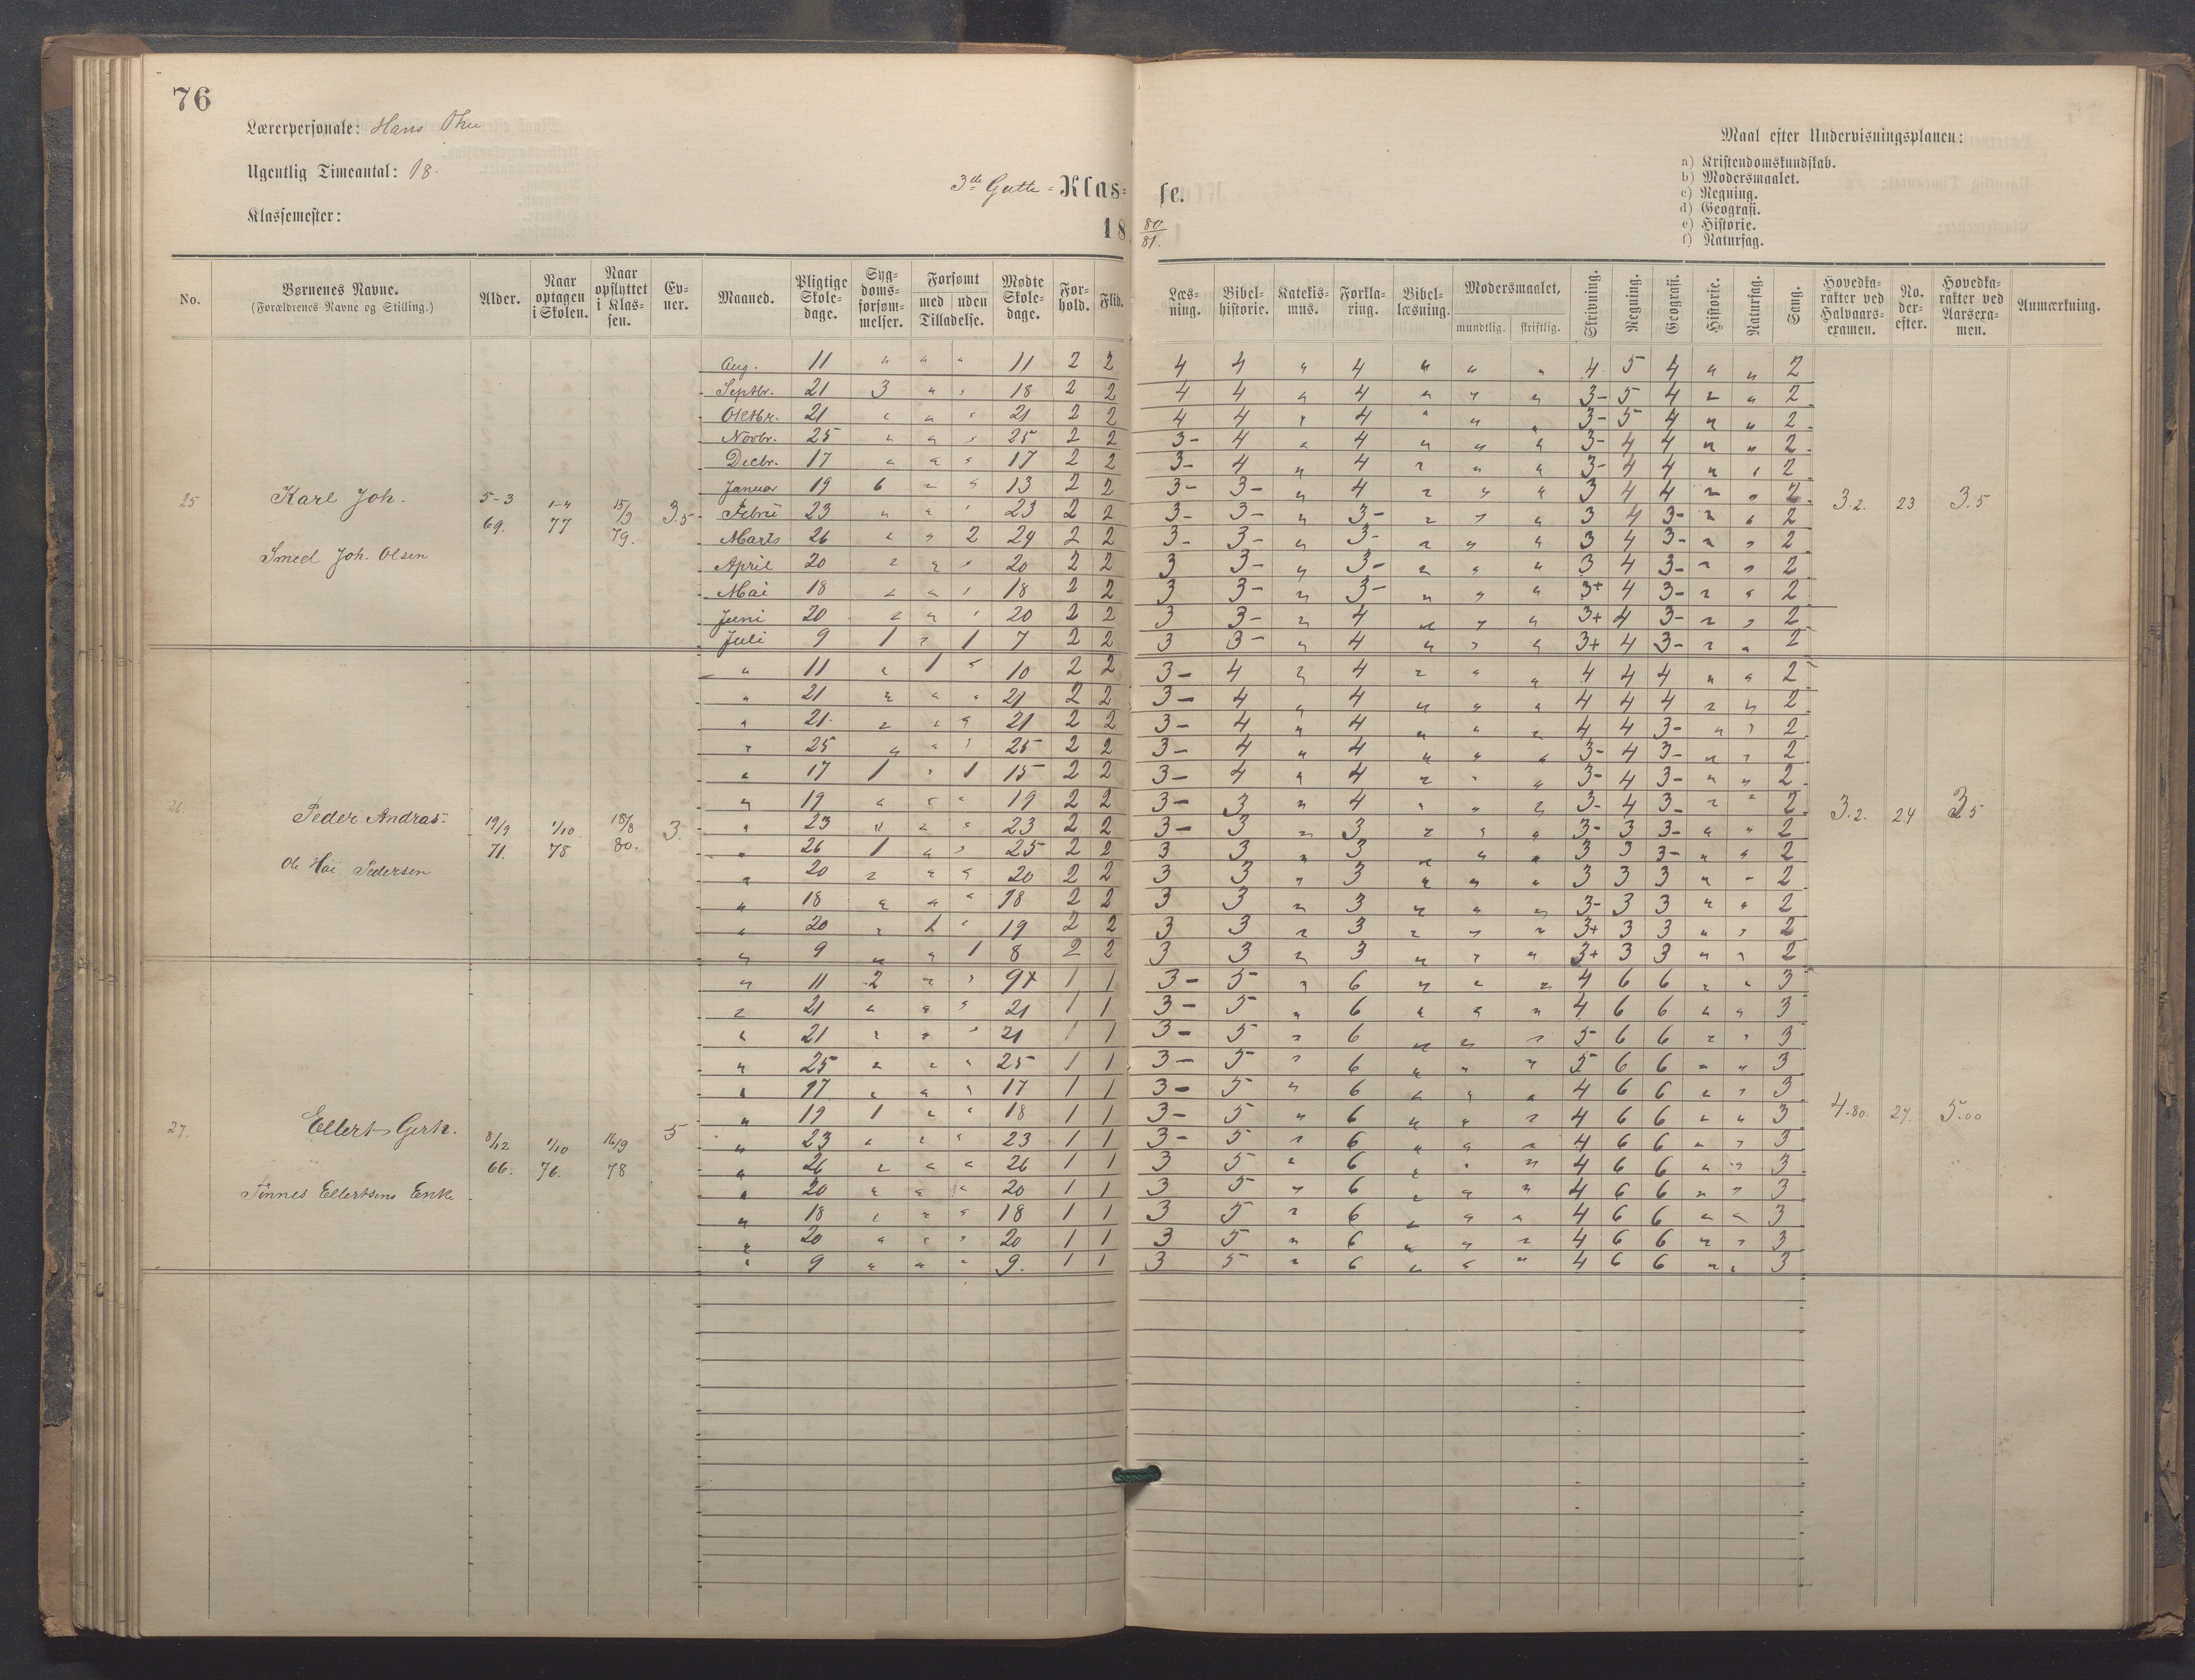 76
Lærerpersonale: Hans
Ugentlig Timeantal: 18.
Klassemester:
3die Gutte = Klas=
18
se.
80
81.
Maal efter Undervisningsplanen:
a) Kristendomskundskab.
b) Modersmaalet.
c) Regning.
d) Geografi.
e) Historie.
f) Naturfag.
No. Børnenes Navne. (Forældrenes Navne og Stilling.) Alder. Naar optagen i Skolen. Naar opflyttet i Klas-sen. Ev-ner. Maaned. Pligtige Skole-dage. Syg-doms-forsøm-melser. Forsømt med uden Tilladelse. Mødte Skole-dage. For-hold. Flid. Læs-ning. Bibel-historie. Katekis-mus. Forkla-ring. Bibel-læsning. Modersmaalet, mundtlig. skriftlig. Skrivning. Regning. Geografi. Historie. Naturfag. Sang. Hovedka-rakter ved Halvaars-examen. No. der-efter. Hovedka-rakter ved Aarsexa-men. Anmærkning.
25 Karl Joh. 5-3 69. 1-4 77 15/9 79. 3.5 3.2. 23 3.5
Smed Joh. Olsen
Aug. 11 " " " 11 2 2 4 4 " 4 " " " 4 5 4 " " 2
Septbr. 21 3 " " 18 2 2 4 4 " 4 " " " 3- 5 4 " " 2
Oktbr. 21 " " " 21 2 2 4 4 " 4 " " " 3- 5 4 " " 2
Novbr. 25 " " " 25 2 2 3- 4 " 4 " " " 3- 4 4 " " 2
Decbr. 17 " " " 17 2 2 3- 4 " 4 " " " 3- 4 4 " " 2
Januar 19 6 " " 13 2 2 3- 3- " 4 " " " 3 4 4 " " 2
Febru 23 " " " 23 2 2 3- 3- " 3- " " " 3 4 3- " " 2
Marts 26 " " 2 24 2 2 3- 3- " 3- " " " 3 4 3- " " 2
April 20 " " " 20 2 2 3 3- " 3- " " " 3 4 3- " " 2
Mai 18 " " " 18 2 2 3 3- " 3- " " " 3+ 4 3- " " 2
Juni 20 " " " 20 2 2 3 3- " 4 " " " 3+ 4 3- " " 2
Juli 9 1 " 1 7 2 2 3 3- " 4 " " " 3+ 4 3- " " 2
26. Peder Andras. 19/9 71. 1/10 78 18/8 80. 3. 3.2. 24 3.5
Ole Høi Pedersen
" 11 " 1 " 10 2 2 3- 4 " 4 " " " 4 4 4 " " 2
" 21 " " " 21 2 2 3- 4 " 4 " " " 4 4 4 " " 2
" 21. " " " 21 2 2 3- 4 " 4 " " " 4 4 3- " " 2
" 25 " " " 25 2 2 3- 4 " 4 " " " 3- 4 3- " " 2
" 17 1 " 1 15 2 2 3- 4 " 4 " " " 3- 4 3- " " 2
" 19 " " " 19 2 2 3- 3 " 4 " " " 3- 4 3- " " 2
" 23 " " " 23 2 2 3- 3 " 3 " " " 3- 3 3- " " 2
" 26 1 " " 25 2 2 3 3 " 3 " " " 3 3 3- " " 2
" 20 " " " 20 2 2 3 3 " 3 " " " 3 3 3 " " 2
" 18 " " " 18 2 2 3 3 " 3 " " " 3- 3 3 " " 2
" 20 " 1 " 19 2 2 3 3 " 3 " " " 3+ 3 3 " " 2
" 9 " " 1 8 2 2 3 3 " 3 " " " 3+ 3 3 " " 2
27. Ellert Gerh. 8/12 66. 1/10 76. 16/9 78 5 4.80. 27. 5.00
Tønnes Ellertsens Enke
" 11 2 " " 9x 1 1 3- 5 " 6 " " " 4 6 6 " " 3
" 21 " " " 21 1 1 3- 5 " 6 " " " 4 6 6 " " 3
" 21 " " " 21 1 1 3- 5 " 6 " " " 5 6 6 " " 3
" 25 " " " 25 1 1 3- 5 " 6 " " " 5 6 6 " " 3
" 17 " " " 17 1 1 3- 5 " 6 " " " 4 6 6 " " 3
" 19 1 " " 18 1 1 3- 5 " 6 " " " 4 6 6 " " 3
" 23 " " " 23 1 1 3- 5 " 6 " " " 4 6 6 " " 3
" 26 " " " 26 1 1 3 5 " 6 " " " 4 6 6 " " 3
" 20 " " " 20 1 1 3 5 " 6 " " " 4 6 6 " " 3
" 18 " " " 18 1 1 3 5 " 6 " " " 4 6 6 " " 3
" 20 " " " 20 1 1 3 5 " 6 " " " 4 6 6 " " 3
" 9 " " " 9. 1 1 3 5 " 6 " " " 4 6 6 " " 3